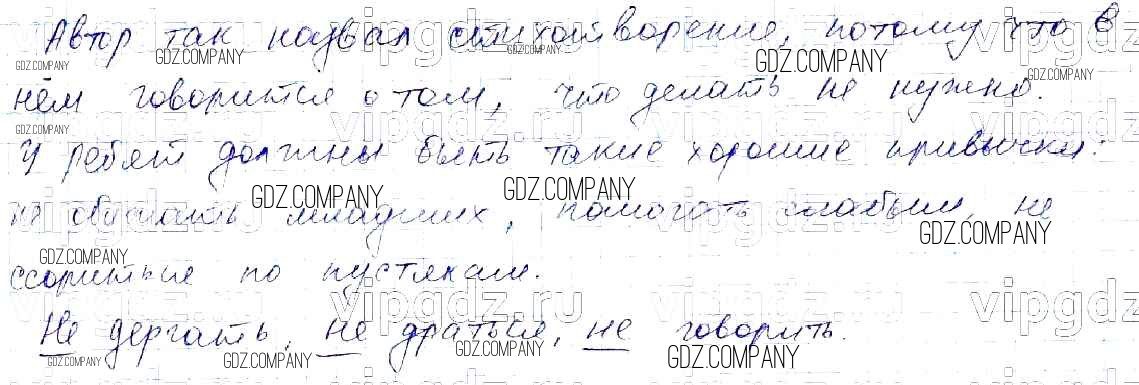 Автор так назвал стихотворение, потому что в
нём говорится о том, что делать не нужно.
У ребят должны быть такие хорошие привычки:
не обижать младших, помогать слабым, не
ссориться по пустякам.
Не дергать, не драться, не говорить.
GDZ.COMPANY
vipgdz.ru